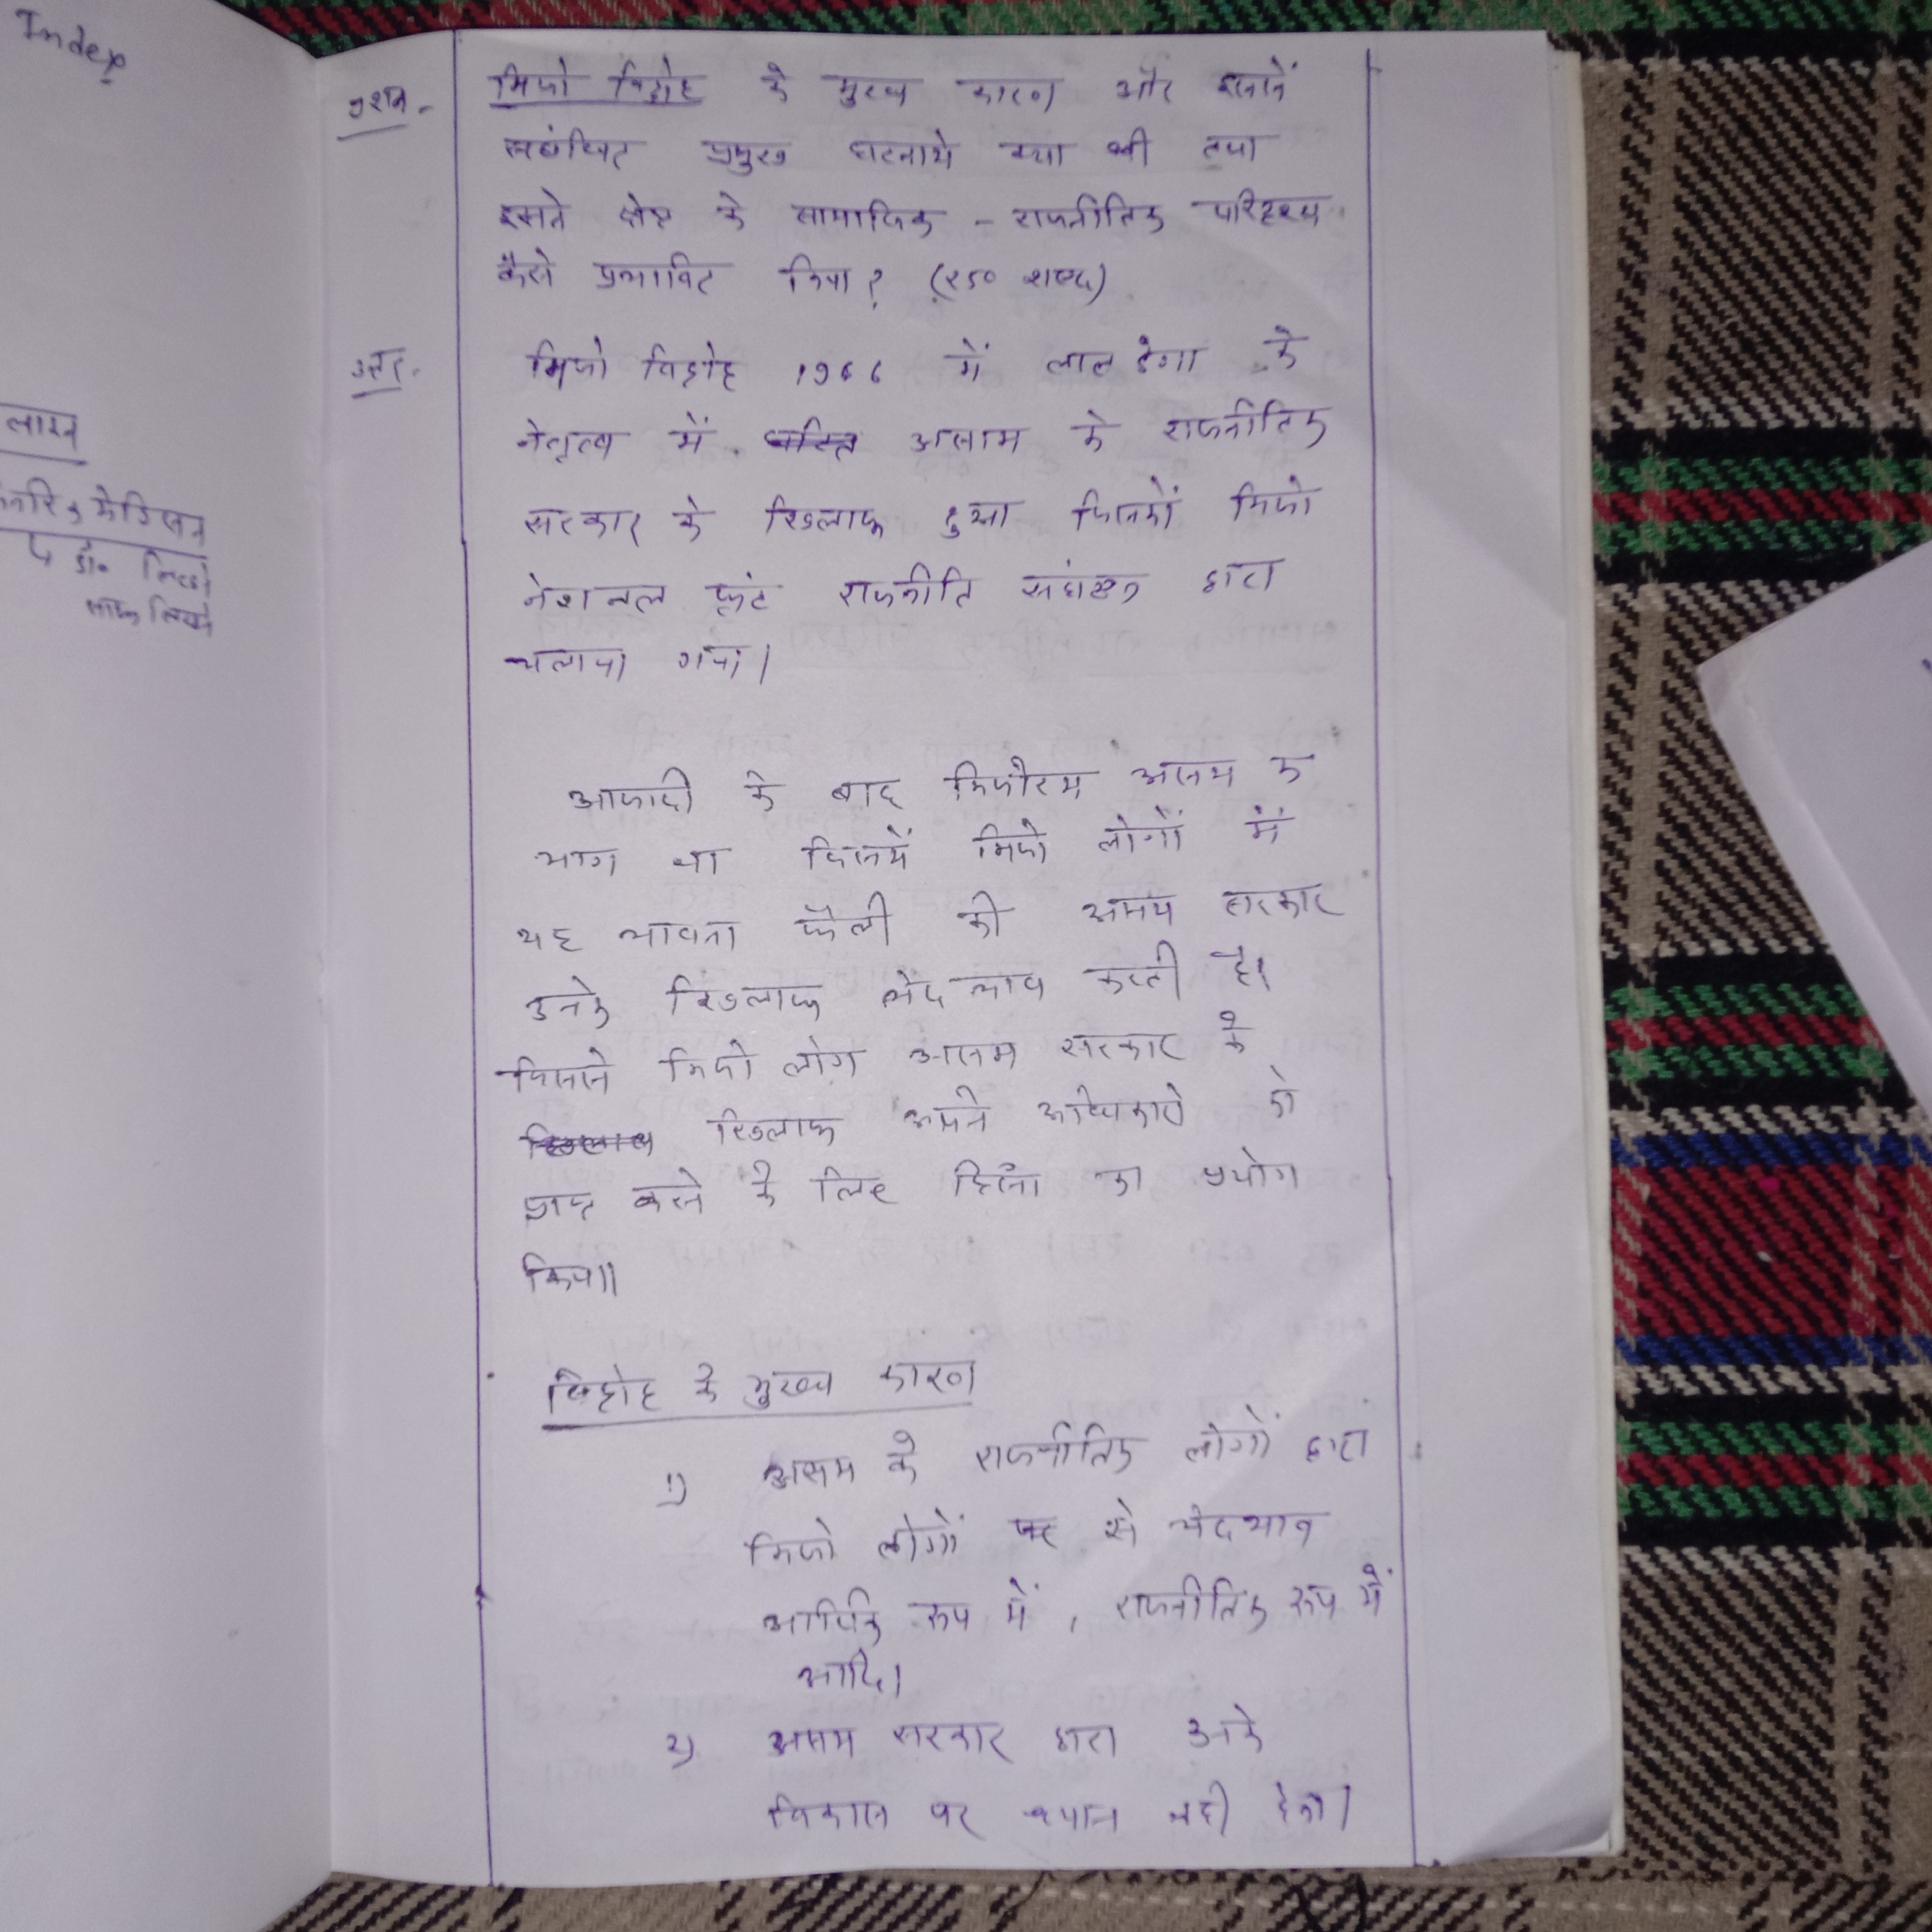 Index
लाइन
प्रश्न - मिजो विद्रोह के मुख्य कारण और इससे
सबंधित प्रमुख घटनाये क्या थी तथा
इसने क्षेत्र के सामाजिक - राजनीतिक परिदृश्य
कैसे प्रभावित किया? (250 शब्द)
उत्तर. मिजो विद्रोह 1966 में लाल डेगा के
नेतृत्व में असाम के राजनीतिक
सरकार के खिलाफ हुआ जिसको मिजो
नेशनल फ्रंट राजनीति संघठन द्वारा
चलाया गया।
आजादी के बाद मिजोरम असम क
भाग था जिसमें मिजो लोगों में
यह भावना फैली की असम सरकार
उनके खिलाफ भेद भाव करती है।
जिससे मिजो लोग असम सरकार के
खिलाफ अपने अधिकारो को
प्राप्त करने के लिए हिंसा का प्रयोग
किया।
विद्रोह के मुख्य कारण
1) असम के राजनीतिक लोगों द्वारा
मिजो लोगों से भेदभाव
आर्थिक रूप में, राजनीतिक रूप में
आदि।
2) असम सरकार द्वारा उनके
विकास पर ध्यान नही देना।